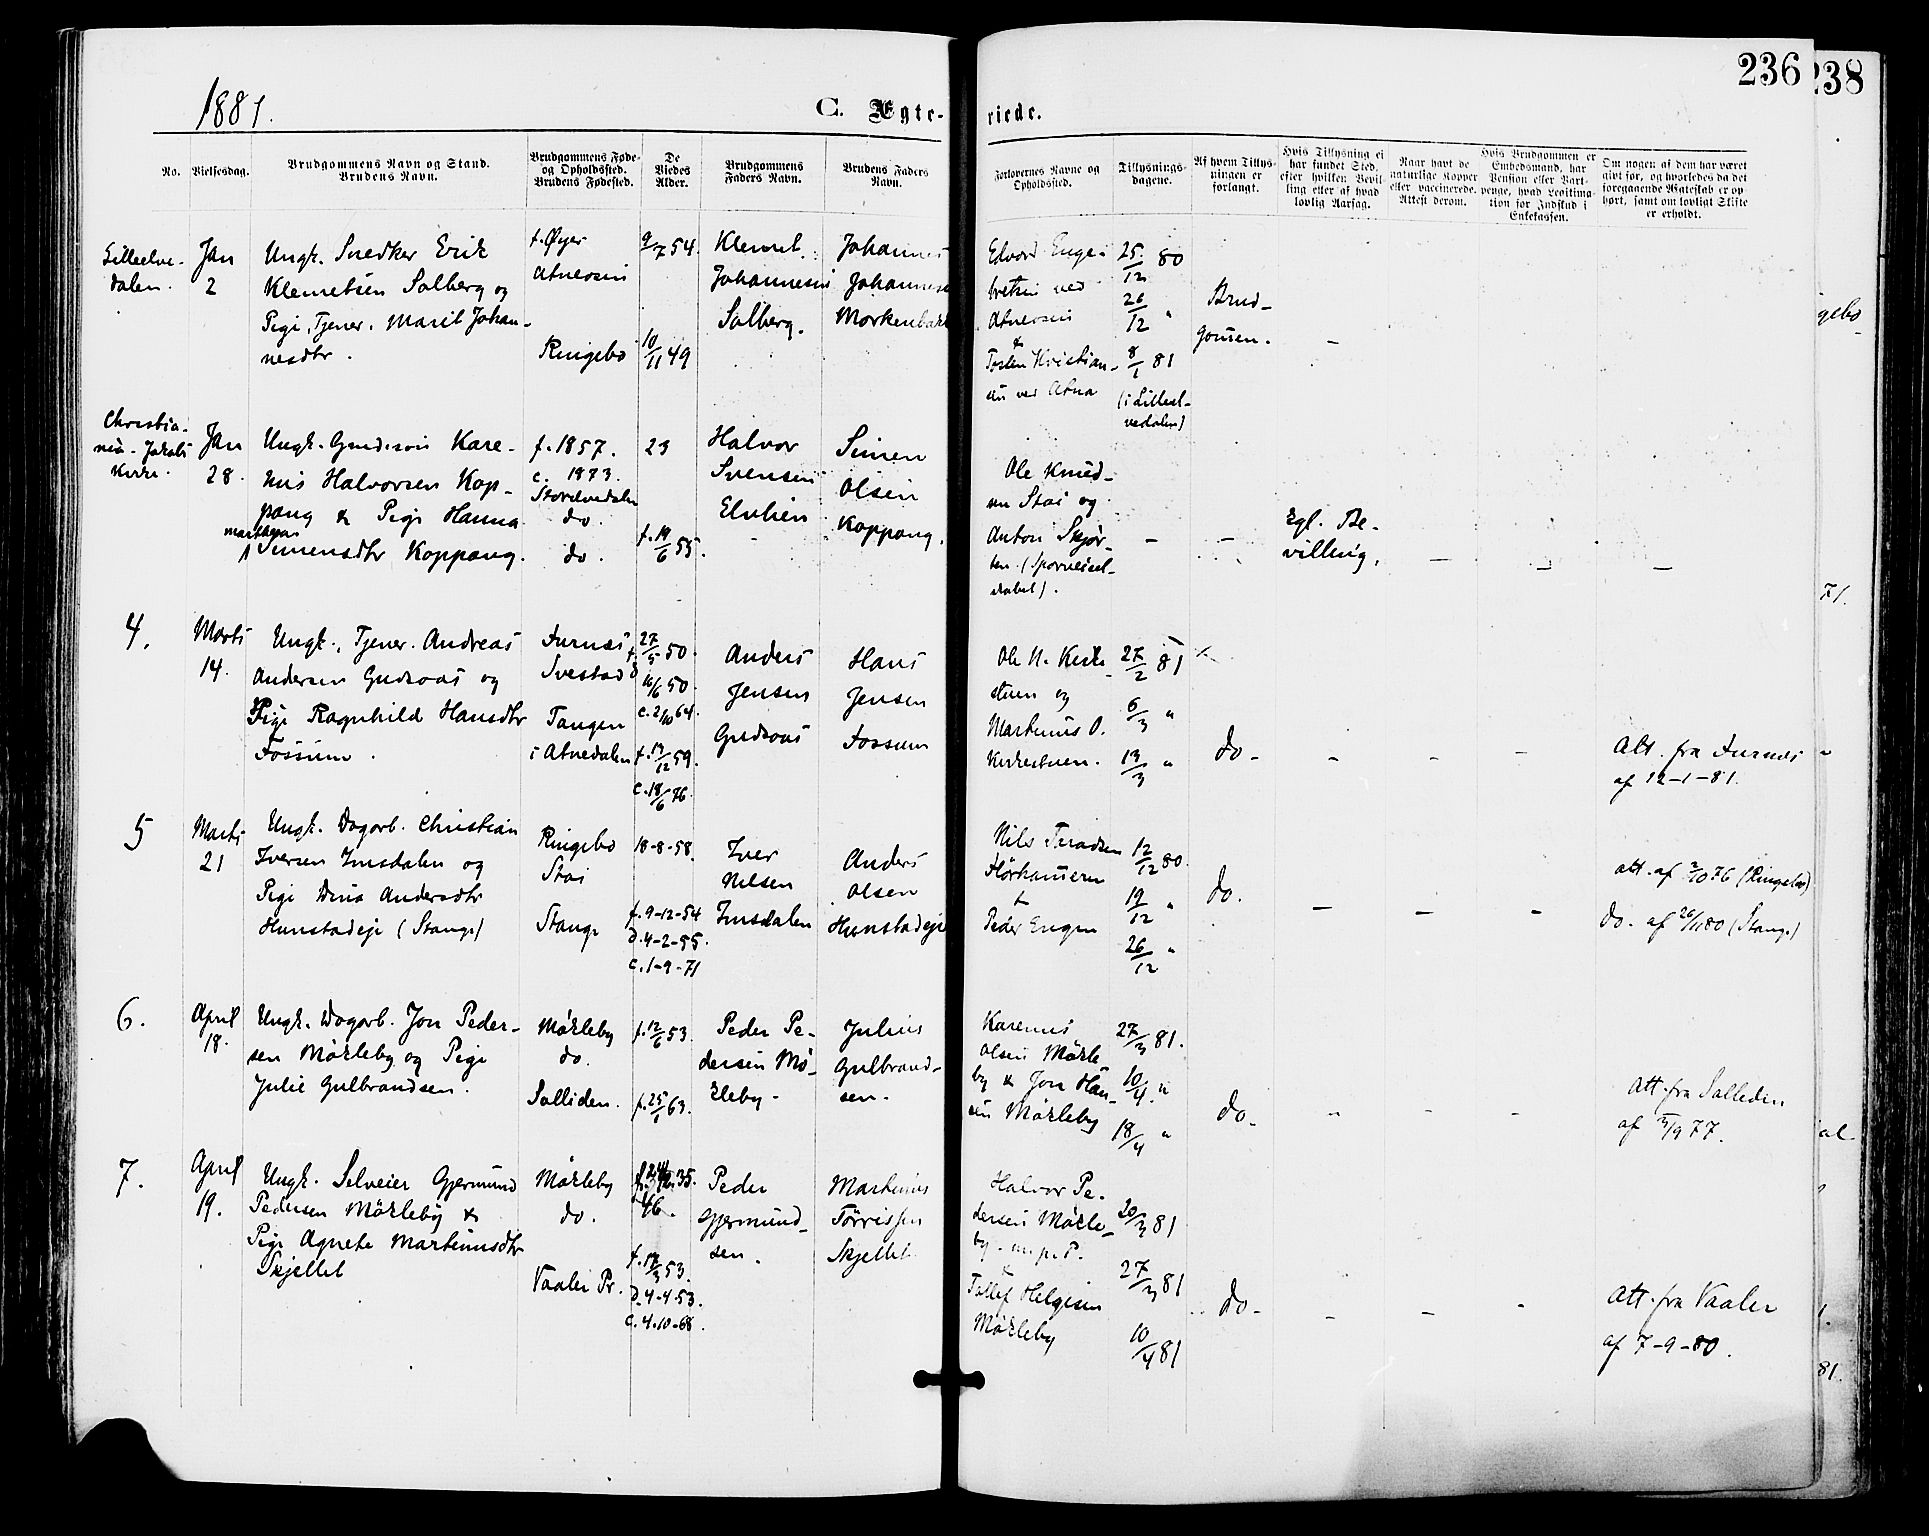 236
238
1881.
C. Ægte-
viede.
No.
Vielsesdag.
Brudgommens Navn og Stand.
Brudens Navn.
Brudgommens Føde-
og Opholdssted.
Brudens Fødested.
De
Viedes
Alder.
Brudgommens
Faders Navn.
Brudens Faders
Navn.
Forlovernes Navne og
Opholdssted.
Tillysnings-
dagene.
Af hvem Tillys-
ningen er
forlangt.
Hvis Tillysning ei
har fundet Sted,
efter hvilken Bevil-
ling eller af hvad
lovlig Aarsag.
Naar havt de
naturlige Kopper
eller vaccinerede.
Attest derom.
Hvis Brudgommen er
Embedsmand, har
Pension eller Vart-
penge, hvad Legitima-
tion for Indskud i
Enkekassen.
Om nogen af dem har været
givt før, og hvorledes da det
foregaaende Ægteskab er op-
hørt, samt om lovligt Skifte
er erholdt.
Lilleelve-
dalen.
Jan
2
Ungk. Snedker Erik
Klemetsen Solberg og
Pige, Tjener. Marit Johan-
nesdtr.
f. Øyer
Atneosen
Ringebo
9/7 54.
10/11 49
Klemet
Johannesen
Solberg.
Johannes
Johannesen
Morkenbak
Edvard Enge-
bretsen ved
Atneosen
&
Kristian-
sen ved Atna
25/12 80
26/12 "
8/1 81
(i Lilleel-
vedalen)
Brud-
gomen.
-
Christia-
nia - Jakobs
Kirke.
Jan
28.
Ungk. Kare-
nus Halvorsen Kop-
pang & Pige Hanna
Simensdtr Koppang.
f. 1857.
c. 1873.
Storelvedalen
do.
do.
23
f. 19/6 55.
Halvor
Svensen
Simen
Olsen
Koppang.
Ole Knud-
sen Stai og
Anton Skjør-
-
-
Kgl. Be-
villing.
-
-
-
4.
Marts
14.
Ungk., Tjener. Andreas
Andersen Gudsaas og
Pige Ragnhild Hansdtr
Fossum.
Furnes
Svestad
Tangen
i Atnedalen
27/5 50.
16/6 50.
c. 2/10 64.
f. 13/12 59.
c. 18/6 76.
Anders
Jensen
Gudsaas
Hans
Jensen
Fossum
Ole N. Kirke-
stuen og
Martinus O.
Kirkestuen.
27/2 81
6/3 "
13/3 "
do-
-
-
-
Att. fra Furnes
af 12-1-81.
5
Marts
21
Ungk. Dagarb. Christian
Iversen Imsdalen og
Pige Dina Andersdtr
Hunstadeje (Stange)
Ringebo
Stai
Stange
18-8-58.
f. 9-12-54
d. 4-2-55.
c. 1-9-71
Iver
Nilsen
Imsdalen
Anders
Olsen
Hunstadeje
Nils
&
Peder Engen
12/12 80.
19/12 "
26/12 "
do.
-
-
-
att. af 2/10 76 (Ringebo)
do. af 26/11 80 (Stange)
6.
April
18.
Ungk. Dagarb. Jon Peder-
sen Mørkeby og Pige
Julie Gulbrandsen.
Mørkeby
do.
Solliden.
f. 12/6 53.
f. 25/1 63.
Peder Pe-
dersen Mø-
rkeby-
Julius
Gulbrand-
sen.
Karenus
Olsen Mørke-
by & Jon Han-
sen Mørkeby
27/3 81.
10/4 "
18/4 "
do-
"
-
-
Att. fra Solleden
af 5/9 77.
7.
April
19.
Ungk. Selveier Gjermund
Pedersen Mørkeby &
Pige Agnete Martinusdtr
Skjellet
Mørkeby
do.
Vaaler Pr.
46.
f. 17/3 53.
d. 4-4-53.
c. 4-10-68.
Peder
Gjermund-
sen.
Martinus
Tørrissen
Skjellet
Halvor Pe-
dersen Mørke-
by
&
Tollef Helgesen
Mørkeby
20/3 81
27/3 81
10/4 81
do-
-
-
-
Att. fra Vaaler
af 7-9-80.
gebo
71.
81.